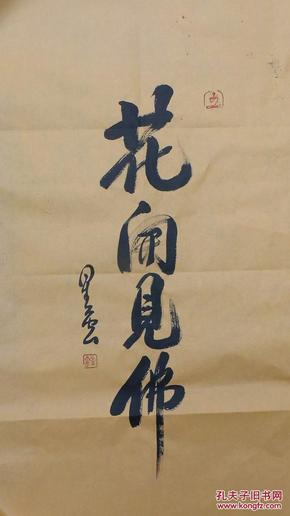 花開見佛
星雲
孔夫子旧书网
www.kongfz.com